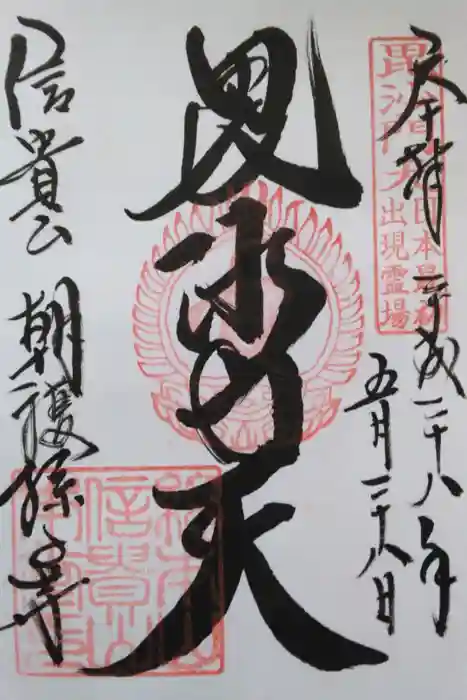 奉拝 平成二十八年
五月二十八日
毘沙門天
日本最初
出現霊場
毘沙門天
信貴山 朝護孫子寺